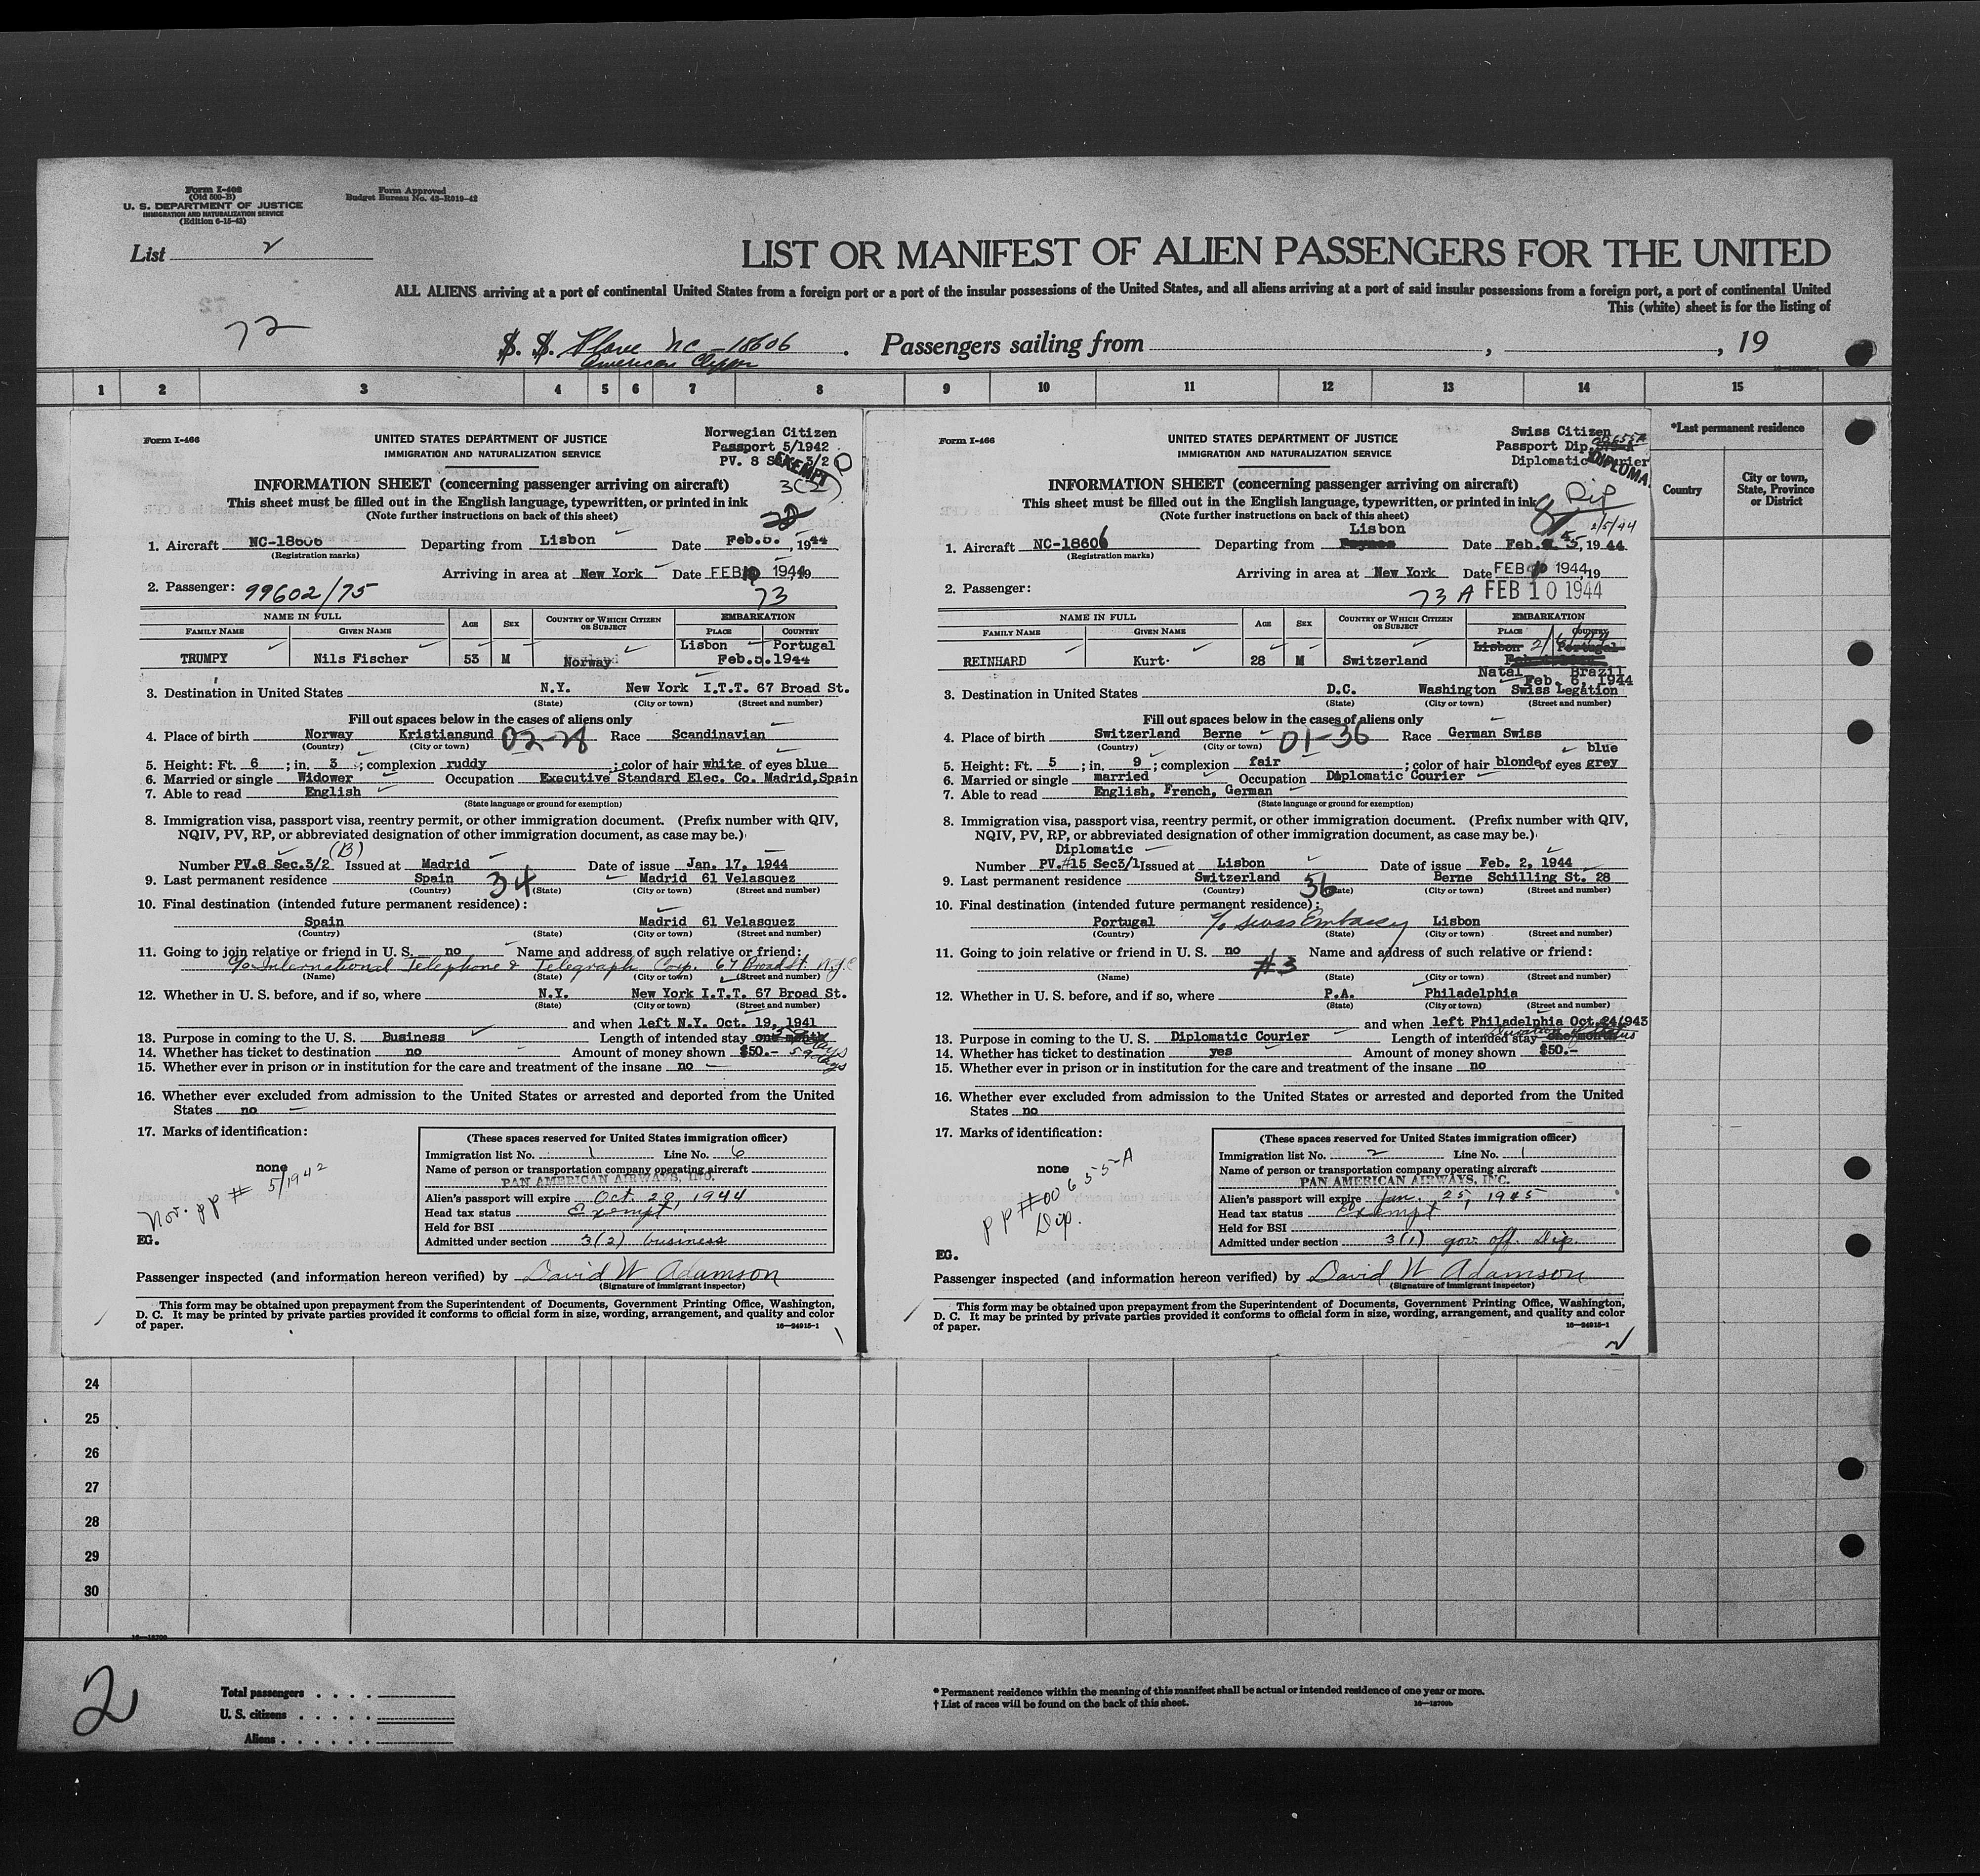 Form I-402
(Old 500-B)
U. S. DEPARTMENT OF JUSTICE
IMMIGRATION AND NATURALIZATION SERVICE
(Edition 6-15-43)
Form Approved
Budget Bureau No. 43-R019-42
List 2
LIST OR MANIFEST OF ALIEN PASSENGERS FOR THE UNITED
ALL ALIENS arriving at a port of continental United States from a foreign port or a port of the insular possessions of the United States, and all aliens arriving at a port of said insular possessions from a foreign port, a port of continental United
This (white) sheet is for the listing of
72
S. S. Plane NC-18606 Passengers sailing from , , 19
American Clipper
1 2 3 4 5 6 7 8 9 10 11 12 13 14 15
Form I-466
UNITED STATES DEPARTMENT OF JUSTICE
IMMIGRATION AND NATURALIZATION SERVICE
Norwegian Citizen
Passport 5/1942
PV. 8 Sec. 3/2
EXEMPT
3(2)
INFORMATION SHEET (concerning passenger arriving on aircraft)
This sheet must be filled out in the English language, typewritten, or printed in ink
(Note further instructions on back of this sheet)
1. Aircraft NC-18606 Departing from Lisbon Date Feb.5., 1944
(Registration marks)
Arriving in area at New York Date FEB 10 1944, 19
2. Passenger: 99602/75 73
NAME IN FULL AGE SEX COUNTRY OF WHICH CITIZEN OR SUBJECT EMBARKATION
FAMILY NAME GIVEN NAME PLACE COUNTRY
Lisbon Portugal
TRUMPY Nils Fischer 53 M Norway Feb.5.1944
3. Destination in United States N.Y. New York I.T.T. 67 Broad St.
(State) (City or town) (Street and number)
Fill out spaces below in the cases of aliens only
4. Place of birth Norway Kristiansund 02-28 Race Scandinavian
(Country) (City or town)
5. Height: Ft. 6 ; in. 3 ; complexion ruddy ; color of hair white of eyes blue
6. Married or single Widower Occupation Executive Standard Elec. Co. Madrid,Spain
7. Able to read English
(State language or ground for exemption)
8. Immigration visa, passport visa, reentry permit, or other immigration document. (Prefix number with QIV,
NQIV, PV, RP, or abbreviated designation of other immigration document, as case may be.)
(B)
Number PV.8 Sec.3/2 Issued at Madrid Date of issue Jan. 17, 1944
9. Last permanent residence Spain 34 Madrid 61 Velasquez
(Country) (State) (City or town) (Street and number)
10. Final destination (intended future permanent residence):
Spain Madrid 61 Velasquez
(Country) (State) (City or town) (Street and number)
11. Going to join relative or friend in U. S. no Name and address of such relative or friend:
c/o International Telephone & Telegraph Corp. 67 Broad St. N.Y.C
(Name) (State) (City or town) (Street and number)
12. Whether in U. S. before, and if so, where N.Y. New York I.T.T. 67 Broad St.
(State) (City or town) (Street and number)
and when left N.Y. Oct. 19, 1941
13. Purpose in coming to the U. S. Business Length of intended stay one month
14. Whether has ticket to destination no Amount of money shown $50.- 59 days
15. Whether ever in prison or in institution for the care and treatment of the insane no
16. Whether ever excluded from admission to the United States or arrested and deported from the United
States no
17. Marks of identification:
none
Nor. pp # 5/1942
EG.
(These spaces reserved for United States immigration officer)
Immigration list No. 1 Line No. 6
Name of person or transportation company operating aircraft
PAN AMERICAN AIRWAYS, INC.
Alien's passport will expire Oct. 29, 1944
Head tax status Exempt
Held for BSI
Admitted under section 3(2) business
Passenger inspected (and information hereon verified) by David W Adamson
(Signature of immigrant inspector)
This form may be obtained upon prepayment from the Superintendent of Documents, Government Printing Office, Washington,
D. C. It may be printed by private parties provided it conforms to official form in size, wording, arrangement, and quality and color
of paper. 16—24915-1
Form I-466
UNITED STATES DEPARTMENT OF JUSTICE
IMMIGRATION AND NATURALIZATION SERVICE
Swiss Citizen
Passport Dip. 00655A
Diplomatic Courier
DIPLOMA
Dip
2/5/44
INFORMATION SHEET (concerning passenger arriving on aircraft)
This sheet must be filled out in the English language, typewritten, or printed in ink
(Note further instructions on back of this sheet)
Lisbon
1. Aircraft NC-18606 Departing from Foynes Date Feb. 5, 1944
(Registration marks)
Arriving in area at New York Date FEB 10 1944, 19
2. Passenger: 73 A FEB 10 1944
NAME IN FULL AGE SEX COUNTRY OF WHICH CITIZEN OR SUBJECT EMBARKATION
FAMILY NAME GIVEN NAME PLACE COUNTRY
Lisbon Portugal
REINHARD Kurt 28 M Switzerland
Natal Brazil
Feb. 6, 1944
3. Destination in United States D.C. Washington Swiss Legation
(State) (City or town) (Street and number)
Fill out spaces below in the cases of aliens only
4. Place of birth Switzerland Berne 01-36 Race German Swiss
(Country) (City or town)
blue
5. Height: Ft. 5 ; in. 9 ; complexion fair ; color of hair blonde of eyes grey
6. Married or single married Occupation Diplomatic Courier
7. Able to read English, French, German
(State language or ground for exemption)
8. Immigration visa, passport visa, reentry permit, or other immigration document. (Prefix number with QIV,
NQIV, PV, RP, or abbreviated designation of other immigration document, as case may be.)
Diplomatic
Number PV.#15 Sec3/1 Issued at Lisbon Date of issue Feb. 2, 1944
9. Last permanent residence Switzerland 36 Berne Schilling St. 28
(Country) (State) (City or town) (Street and number)
10. Final destination (intended future permanent residence):
Portugal c/o Swiss Embassy Lisbon
(Country) (State) (City or town) (Street and number)
11. Going to join relative or friend in U. S. no Name and address of such relative or friend:
#3
(Name) (State) (City or town) (Street and number)
12. Whether in U. S. before, and if so, where P.A. Philadelphia
(State) (City or town) (Street and number)
and when left Philadelphia Oct.24/943
13. Purpose in coming to the U. S. Diplomatic Courier Length of intended stay one month Duration of status
14. Whether has ticket to destination yes Amount of money shown $50.-
15. Whether ever in prison or in institution for the care and treatment of the insane no
16. Whether ever excluded from admission to the United States or arrested and deported from the United
States no
17. Marks of identification:
none
pp #00655-A
Dip.
EG.
(These spaces reserved for United States immigration officer)
Immigration list No. 2 Line No. 1
Name of person or transportation company operating aircraft
PAN AMERICAN AIRWAYS, INC.
Alien's passport will expire Jan. 25, 1945
Head tax status Exempt
Held for BSI
Admitted under section 3(1) gov. off. Dip.
Passenger inspected (and information hereon verified) by David W Adamson
(Signature of immigrant inspector)
This form may be obtained upon prepayment from the Superintendent of Documents, Government Printing Office, Washington,
D. C. It may be printed by private parties provided it conforms to official form in size, wording, arrangement, and quality and color
of paper. 16—24915-1
2
*Last permanent residence
Country
City or town,
State, Province
or District
24
25
26
27
28
29
30
2
Total passengers . . . .
U. S. citizens . . . . .
Aliens . . . . . .
* Permanent residence within the meaning of this manifest shall be actual or intended residence of one year or more.
† List of races will be found on the back of this sheet.